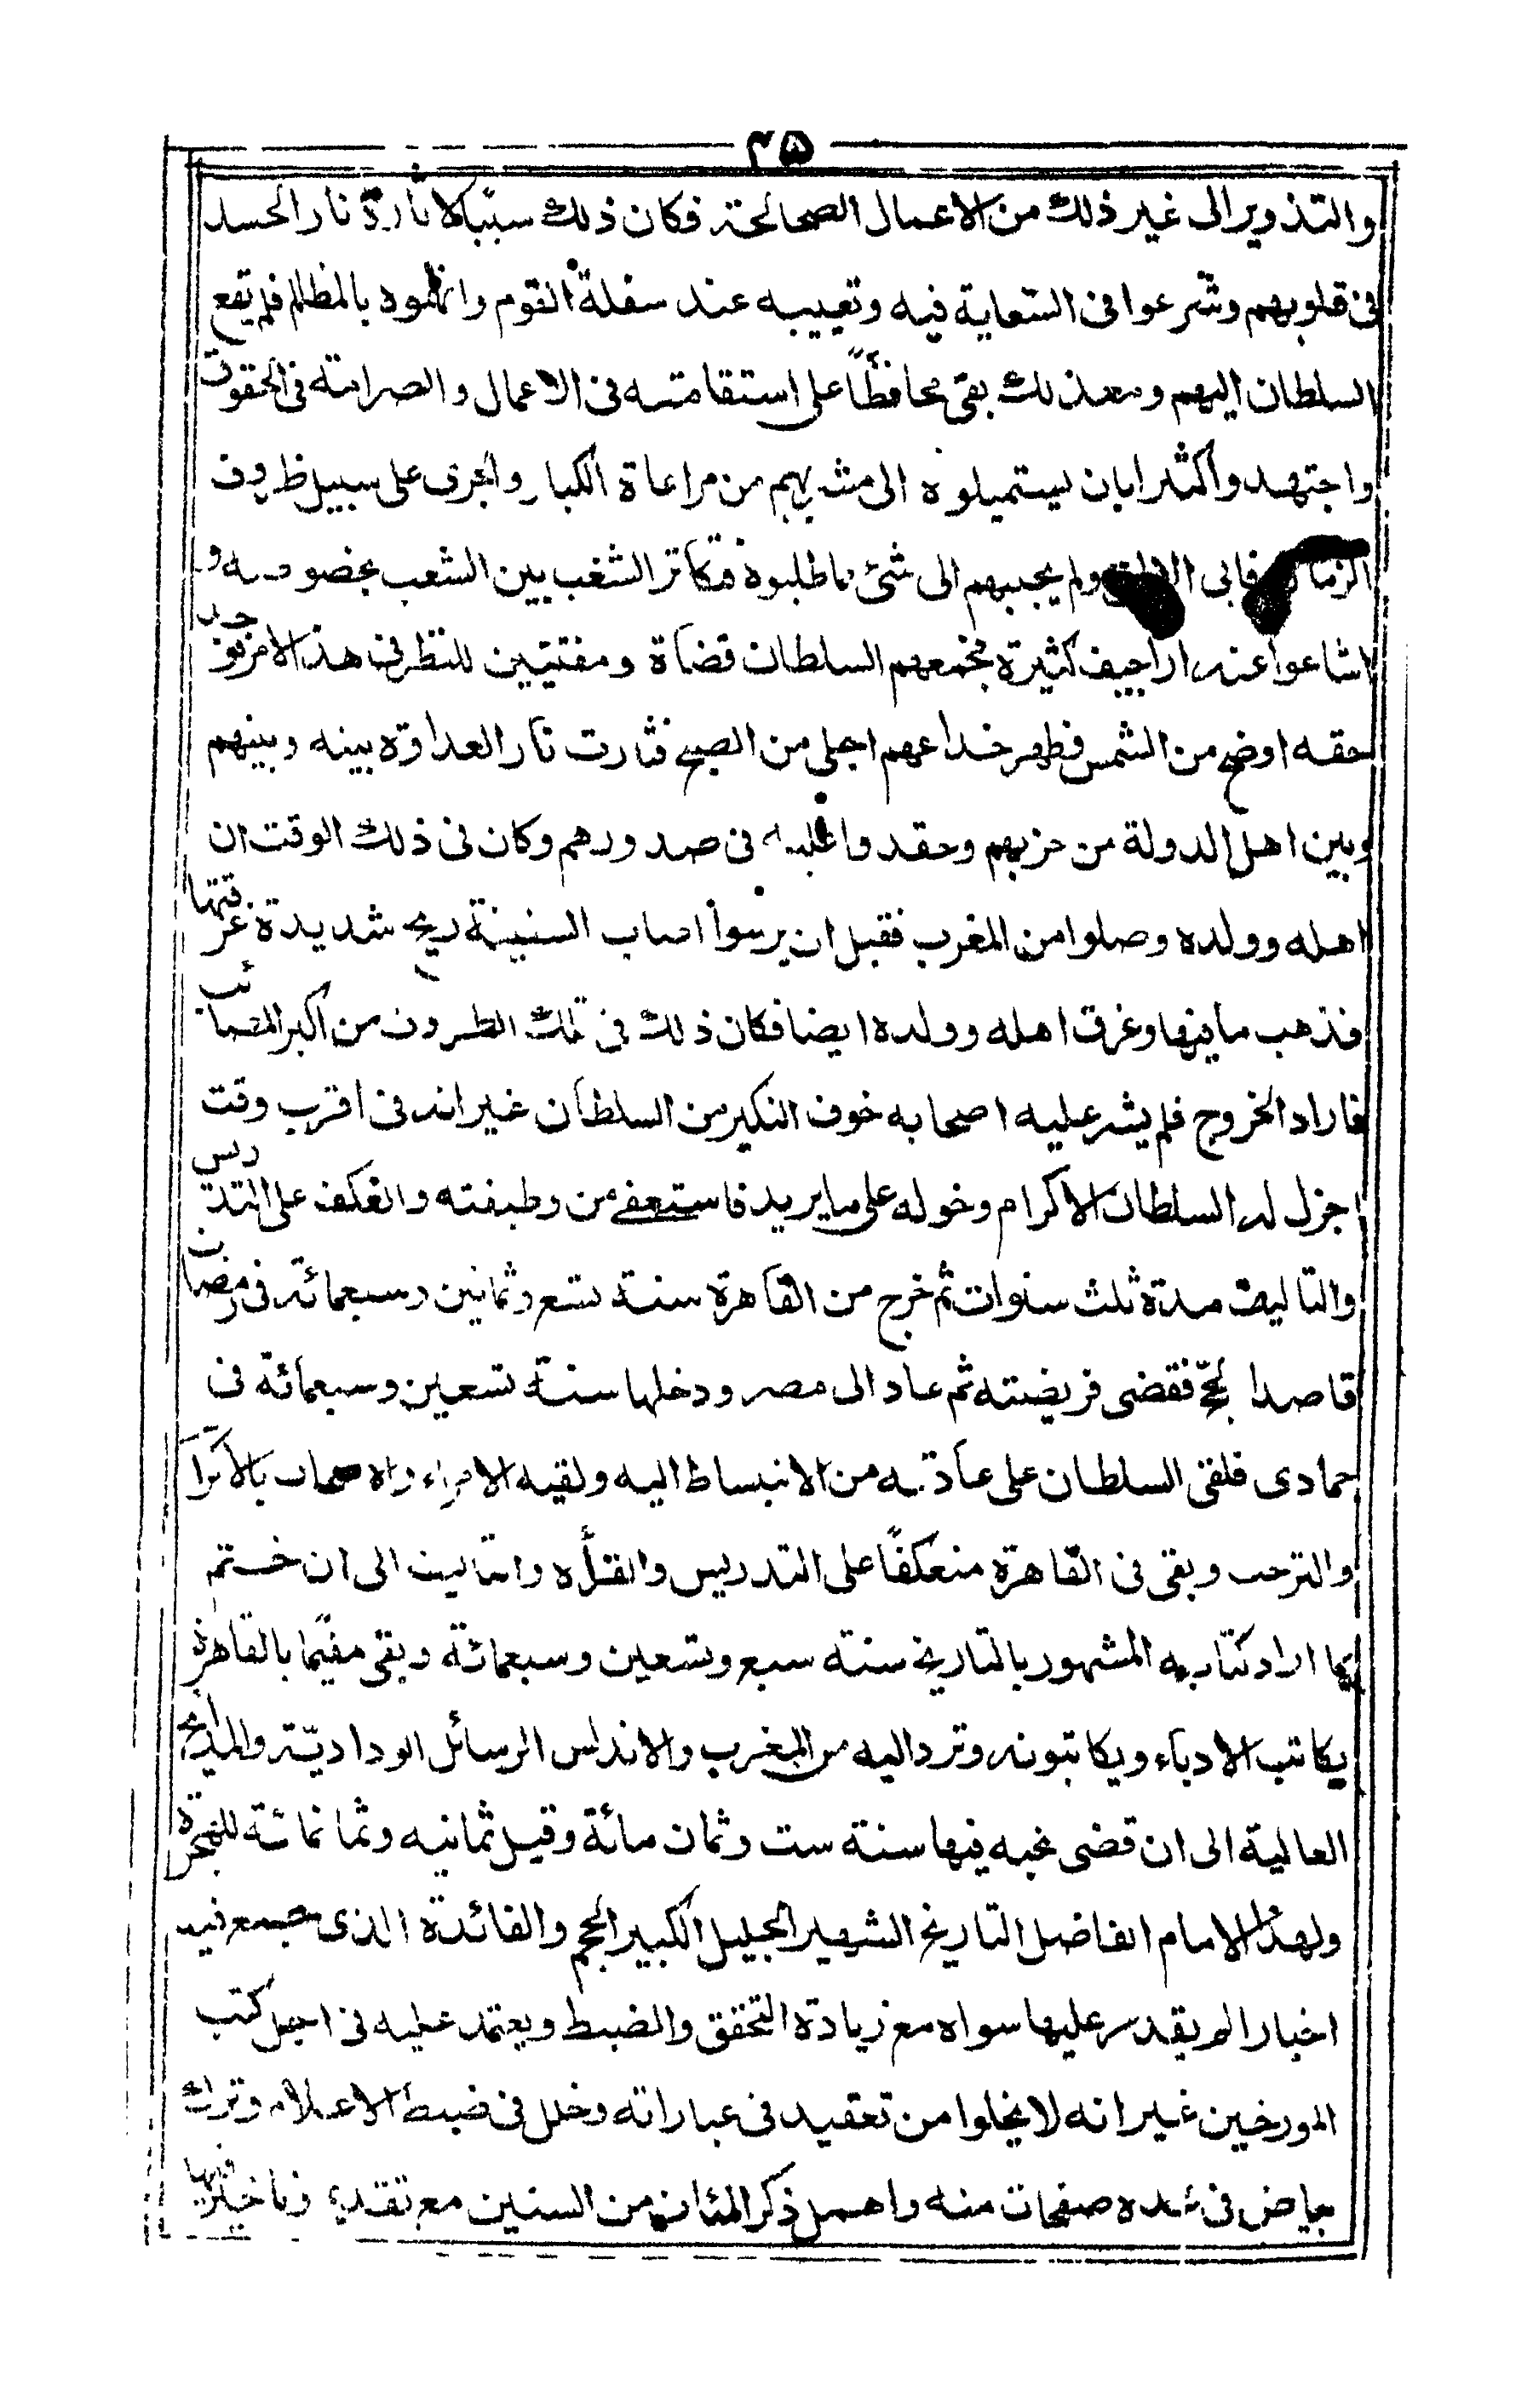 ٢٥
والتذوير الى غير ذلك من الاعمال الصحالحة فكان ذلك سببا لاثارة نار الحسد
فى قلوبهم وشرعوا فى السعاية فيه وتعييبه عند سفلة القوم واتهموه بالمظالم فلم يقع
السلطان اليهم ومعذلك بقى محافظاً على استقامته فى الاعمال والصرامة فى الحقوق
واجتهد واكثرا بان يستميلوه الى مشربهم من مراعاة الكبار والجرى على سبيل ظروف
الزمان فابى ولم يجيبهم الى شئ ما طلبوه فتكاثر الشغب بين الشعب بخصوصه و
اشاعوا عنه اراجيف كثيرة فجمعهم السلطان قضاة ومفتيين للنظر فى هذ الامر فوجد
حقه اوضح من الشمس فظهر خداعهم اجلى من الصبح فثارت نار العداوة بينه وبينهم
وبين اهل الدولة من حزبهم وحقد فى صدورهم وكان فى ذلك الوقت ان
اهله وولده وصلوا من المغرب فقبل ان يرسوا اصاب السفينة ريح شديدة غرقتها
فذهب ما فيها وغرق اهله وولده ايضا فكان ذلك فى تلك الظروف من اكبر المصائب
فاراد الخروج فلم يشر عليه اصحابه خوف النكير من السلطان غير انه فى اقرب وقت
اجزل له السلطان الاكرام وخوله على ما يريد فاستعفى من وظيفته وانعكف على التدريس
والتاليف مدة ثلث سنوات ثم خرج من القاهرة سنة تسع وثمانين وسبعمائة فى رمضان
قاصدا لحج فقضى فريضته ثم عاد الى مصر ودخلها سنة تسعين وسبعمائة فى
جمادى فلقى السلطان على عادته من الانبساط اليه ولقيه الامراء والاصحاب بالاكرام
والترحب وبقى فى القاهرة منعكفاً على التدريس والقرأه والتاليف الى ان ختم
بما اراد كتابه المشهور بالتاريخ سنة سبع وتسعين وسبعمائة وبقى مقيما بالقاهرة
يكاتب الادباء ويكاتبونه وترد اليه من المغرب والاندلس الرسائل الودادية والمدايح
العالية الى ان قضى نحبه فيها سنة ست وثمان مائة وقيل ثمانيه وثمانمائة للهجرة
ولهذا الامام الفاضل التاريخ الشهير الجليل الكبير الحجم والفائدة الذى جمع فيه
اخبارا لم يقدر عليها سواه مع زيادة التحقق والضبط ويعتمد عليه فى اجل كتب
المورخين غير انه لا يخلوا من تعقيد فى عباراته وخلل فى ضبط الاعلام وترك
بياض فى عده صفحات منه واهمل ذكر المئات من السنين مع تقديم وتاخير فيها